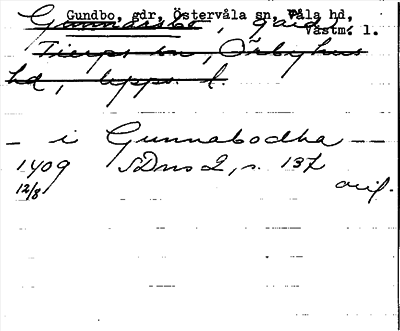 Gundbo, gdr, Östervåla sn, Våla hd,
Västm. l.
Gunnarsbo, gård
Tierps sn, Örbyhus
hd, Upps. l.
– i Gunnabodha – –
1409 SDns 2, s. 137
12/8 orig.